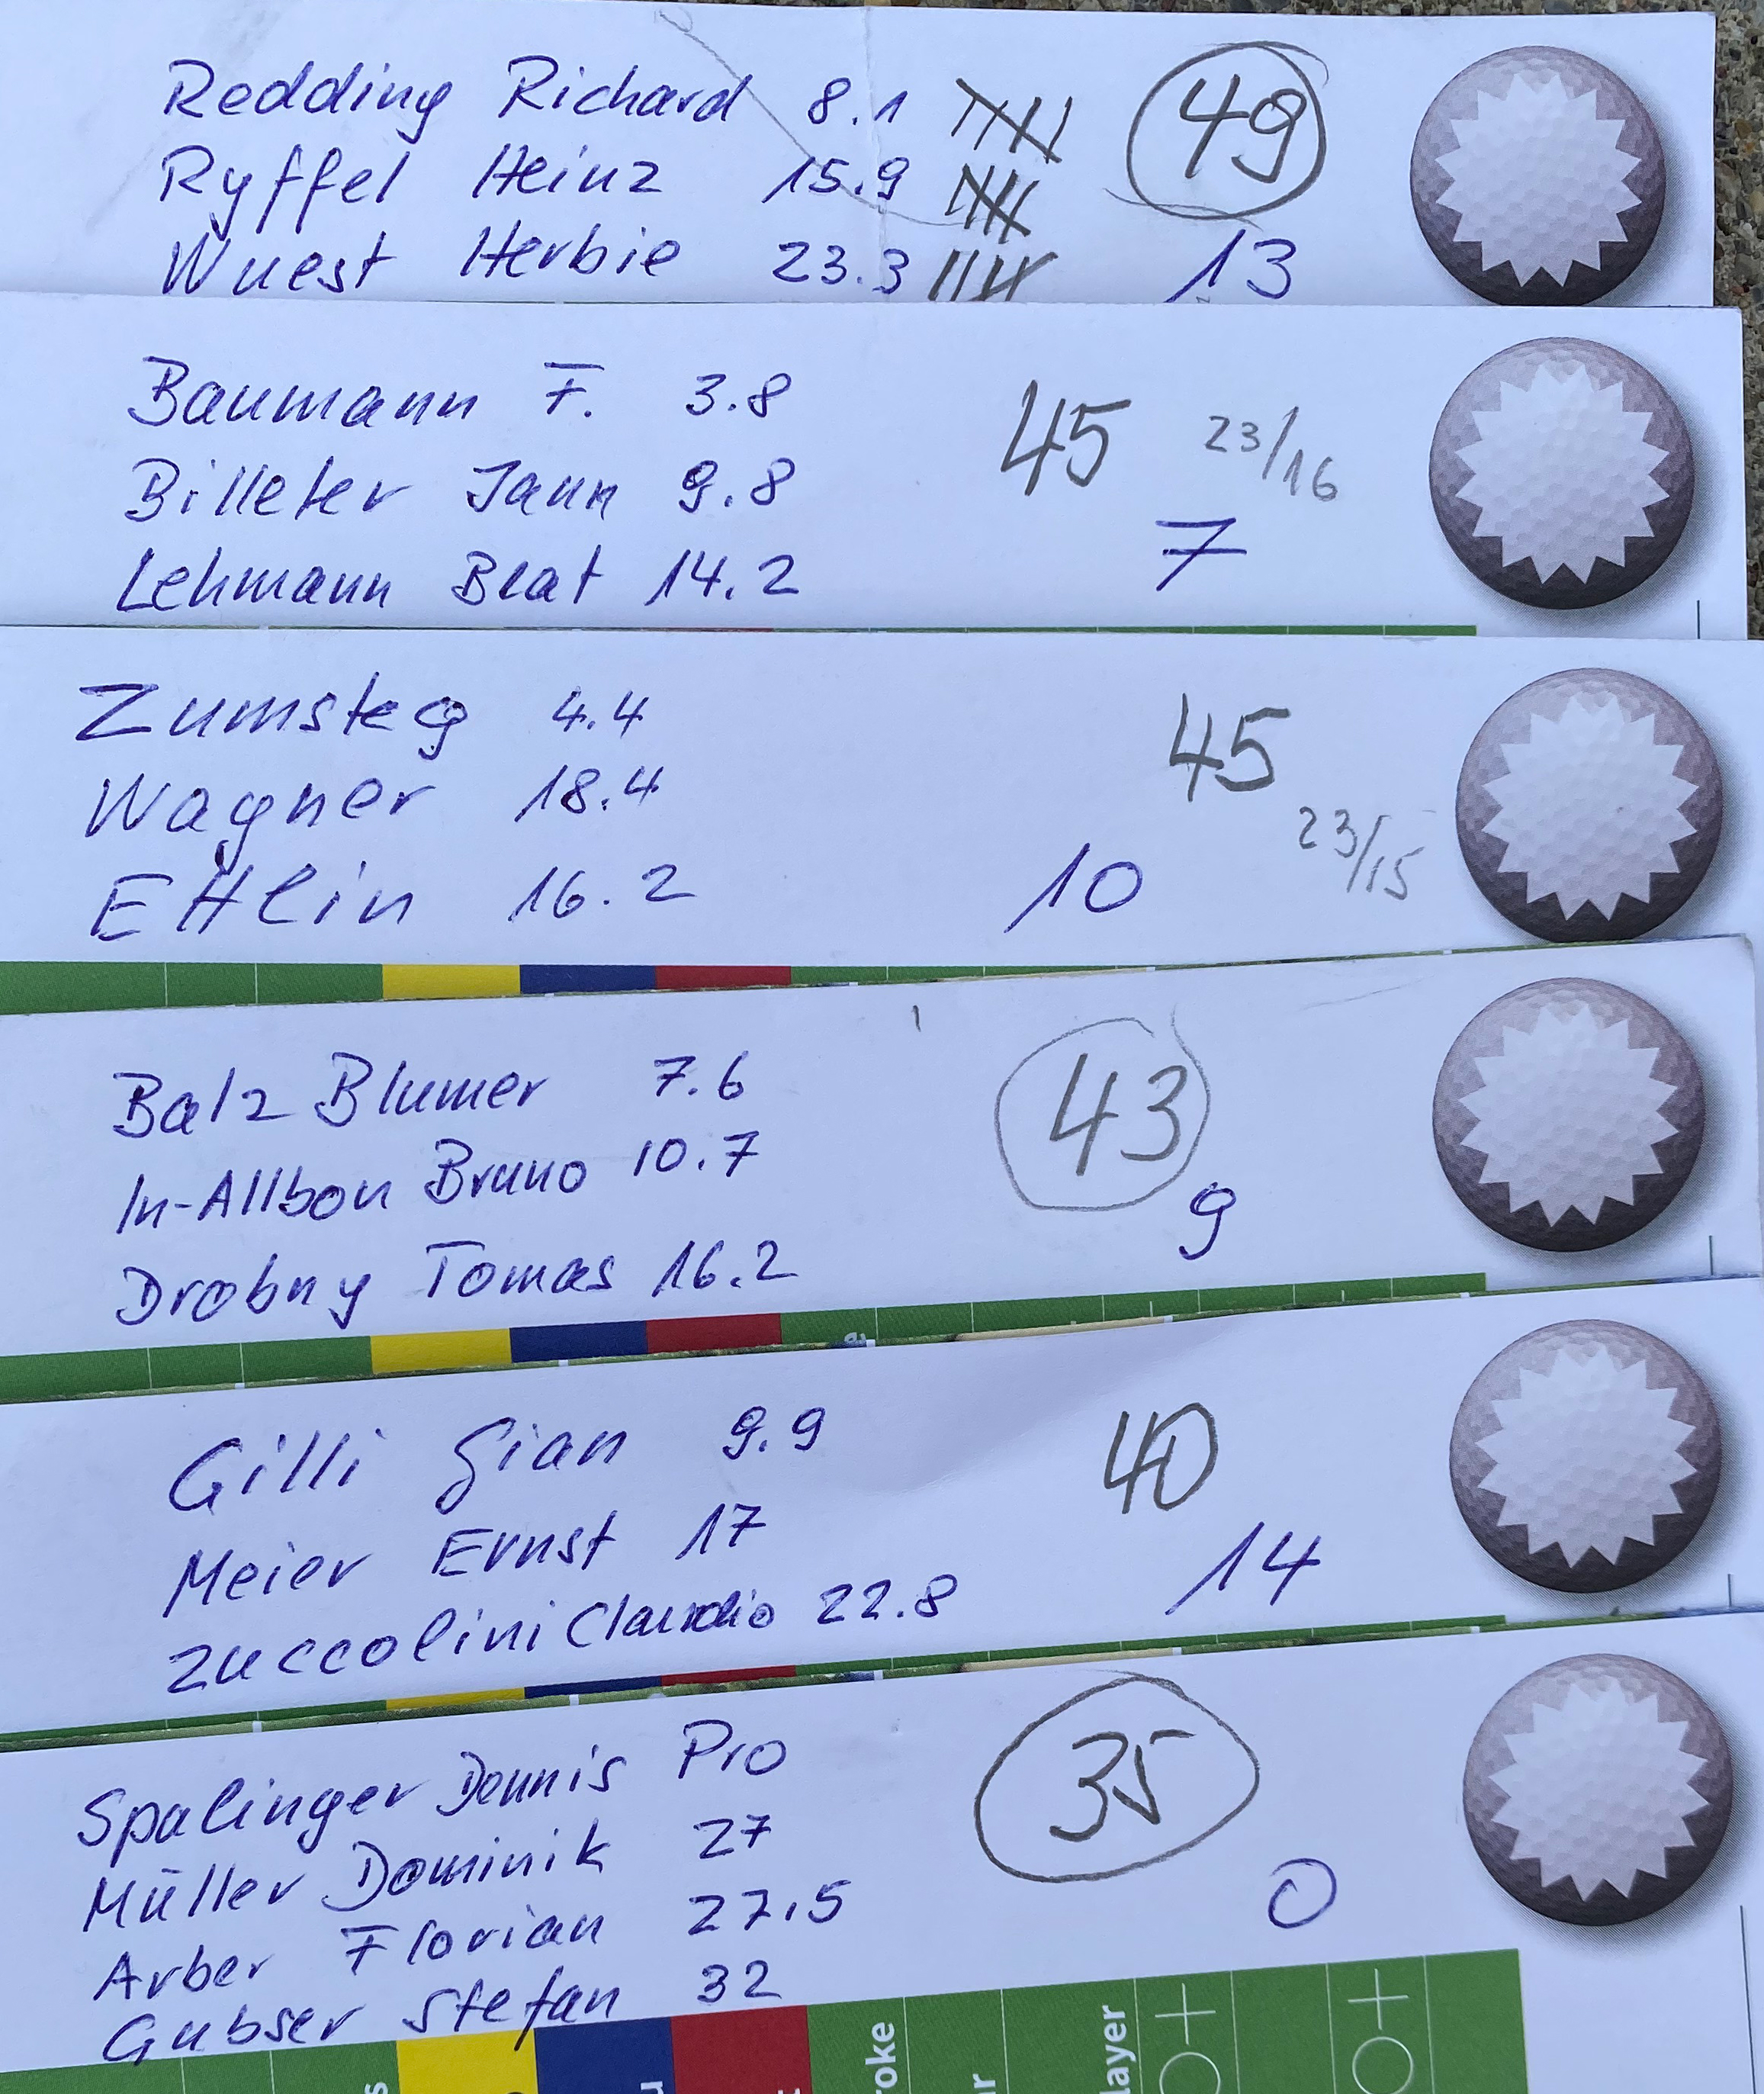 Redding Richard 8.1
49
Ryffel Heinz 15.9
Wuest Herbie 23.3 13
Baumann F. 3.8
45 23/16
Billeter Jann 9.8
7
Lehmann Beat 14.2
Zumsteg 4.4
45
Wagner 18.4
23/15
Ettlin 16.2 10
Balz Blumer 7.6
43
In-Allbon Bruno 10.7
9
Drobny Tomas 16.2
Gilli Gian 9.9
40
Meier Ernst 17
14
Zuccolini Claudio 22.8
Spalinger Dennis Pro
35
Müller Dominik 27
0
Arber Florian 27.5
Gubser Stefan 32
oke
layer